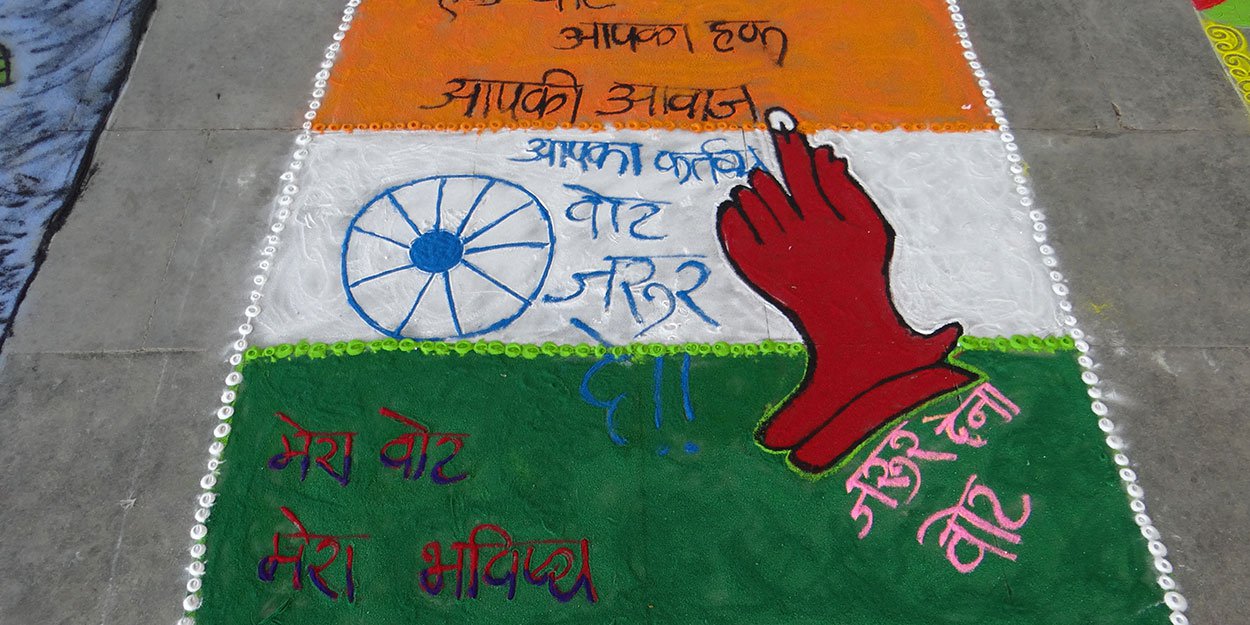 एक वोट
आपका हक
आपकी आवाज
आपका कर्तव्य
वोट
जरूर
दो!!
मेरा वोट
मेरा भविष्य
जरूर देना
वोट